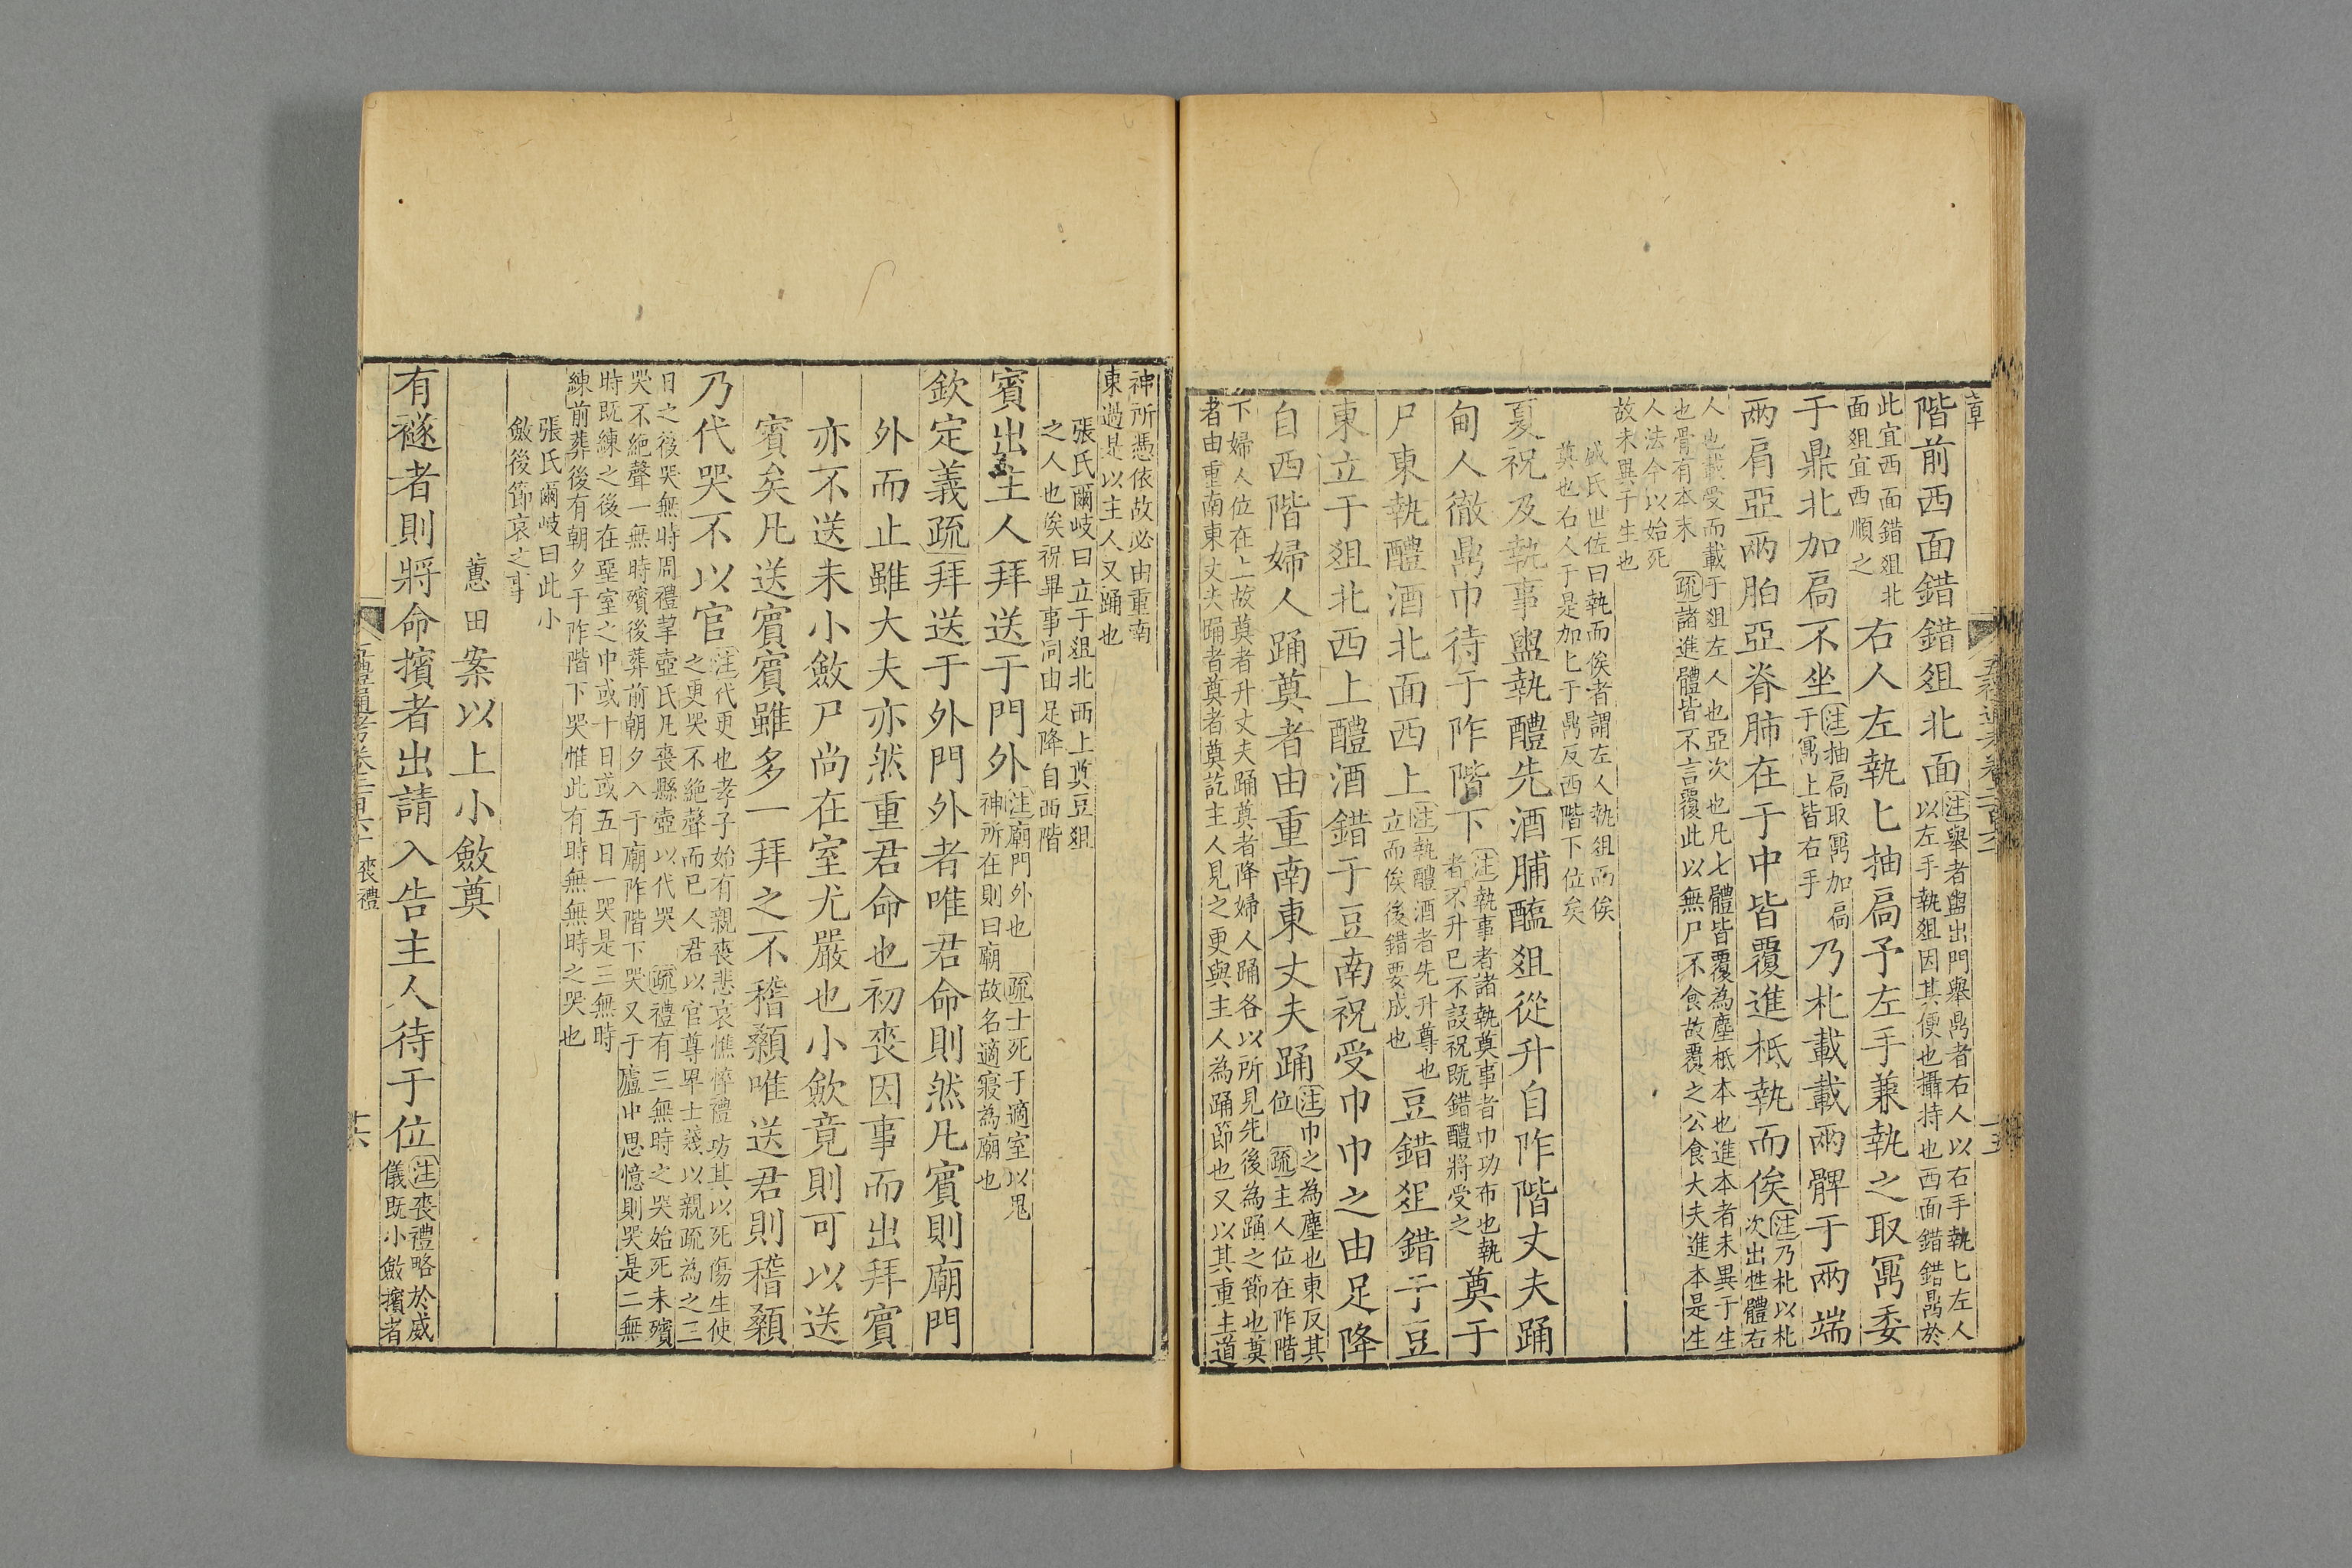 階前西面錯錯俎北面注舉者盥出門舉鼎者右人以右手執匕左人
以左手執俎因其便也攝持也西面錯錯鼎於
此宜西面錯俎北
面俎宜西順之右人左執匕抽扃予左手兼執之取鼏委
于鼎北加扃不坐注抽扃取鼏加扃
于鼏上皆右手乃朼載載兩髀于兩端
兩肩亞兩胉亞脊肺在于中皆覆進柢執而俟注乃朼以朼
次出牲體右
人也載受而載于俎左人也亞次也凡七體皆覆為塵柢本也進本者未異于生
也骨有本末 疏諸進體皆不言覆此以無尸不食故覆之公食大夫進本是生
人法今以始死
故未異于生也
盛氏世佐曰執而俟者謂左人執俎而俟
奠也右人于是加匕于鼎反西階下位矣
夏祝及執事盥執醴先酒脯醢俎從升自阼階丈夫踊
甸人徹鼎巾待于阼階下注執事者諸執奠事者巾功布也執
者不升已不設祝既錯醴將受之奠于
尸東執醴酒北面西上注執醴酒者先升尊也
立而俟後錯要成也豆錯俎錯于豆
東立于俎北西上醴酒錯于豆南祝受巾巾之由足降
自西階婦人踊奠者由重南東丈夫踊注巾之為塵也東反其
位 疏主人位在阼階
下婦人位在上故奠者升丈夫踊奠者降婦人踊各以所見先後為踊之節也奠
者由重南東丈夫踊者奠者奠訖主人見之更與主人為踊節也又以其重主道
神所憑依故必由重南
東過是以主人又踊也
張氏爾岐曰立于俎北西上奠豆俎
之人也俟祝畢事同由足降自西階
賓出主人拜送于門外注廟門外也 疏士死于適室以鬼
神所在則曰廟故名適寢為廟也
欽定義疏拜送于外門外者唯君命則然凡賓則廟門
外而止雖大夫亦然重君命也初喪因事而出拜賓
亦不送未小斂尸尚在室尤嚴也小斂竟則可以送
賓矣凡送賓賓雖多一拜之不稽顙唯送君則稽顙
乃代哭不以官注代更也孝子始有親喪悲哀憔悴禮坊其以死傷生使
之更哭不絕聲而已人君以官尊卑士賤以親疏為之三
日之後哭無時周禮挈壺氏凡喪縣壺以代哭 疏禮有三無時之哭始死未殯
哭不絕聲一無時殯後葬前朝夕入于廟阼階下哭又于廬中思憶則哭是二無
時既練之後在堊室之中或十日或五日一哭是三無時
練前葬後有朝夕于阼階下哭惟此有時無無時之哭也
張氏爾岐曰此小
斂後節哀之事
蕙田案以上小斂奠
有襚者則將命擯者出請入告主人待于位注喪禮略於威
儀既小斂擯者
喪禮